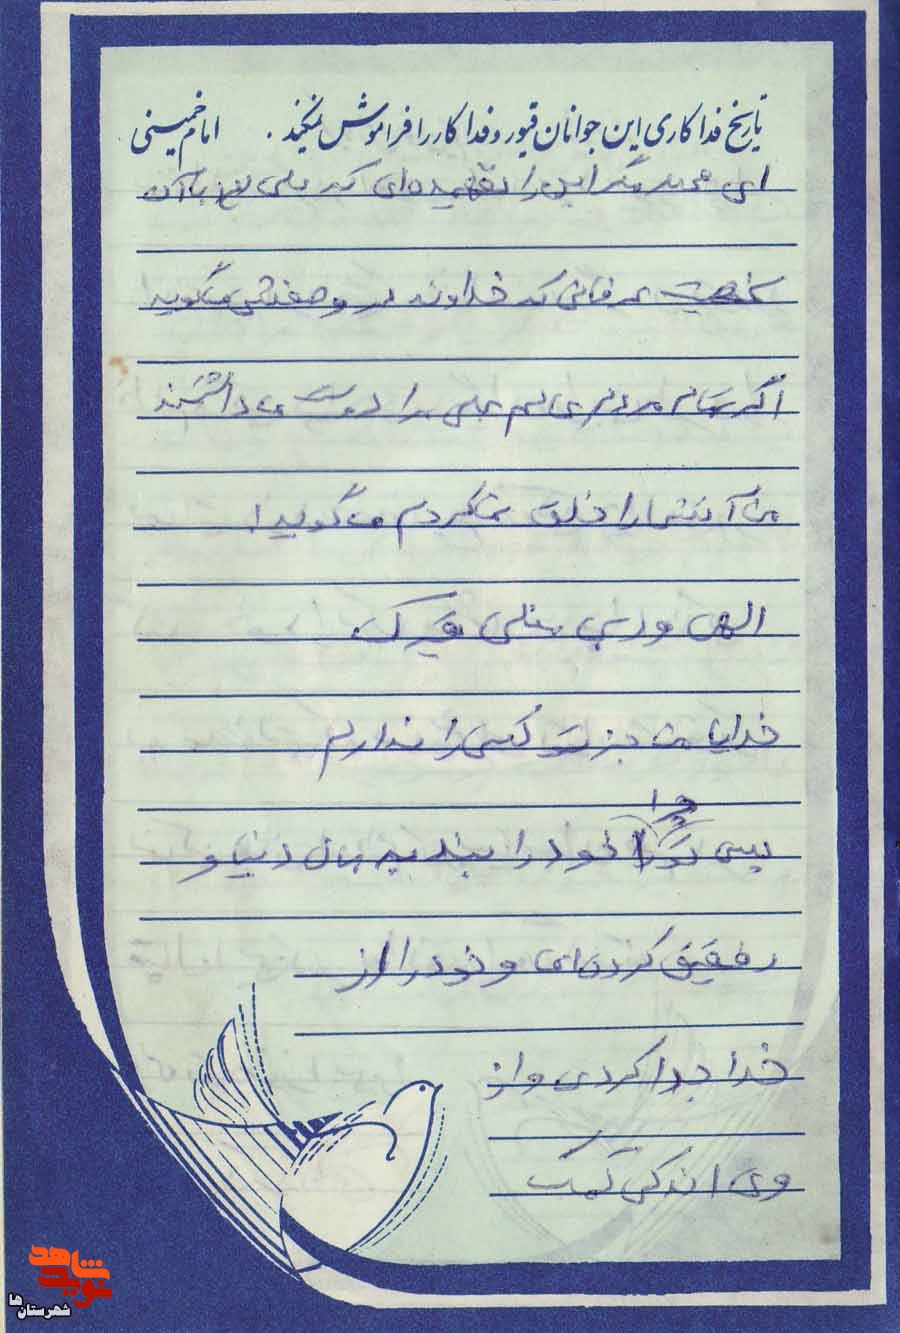 تاریخ فداکاری این جوانان غیور و فداکار را فراموش نمیکند. امام خمینی
ای مگر این را نفهمیده‌ای که علی با آن
شخصیت عرفانی که خداوند در وصفش میگوید
اگر تمام مردم عالم علی را دوست می داشتند
من آتش را خلق نمیکردم میگوید!
الهی و ربی من لی غیرک
خدایا من جز تو کسی را ندارم
پس تو چرا خود را بند به مال دنیا و
رفیق کرده‌ای و خود را از
خدا جدا کردی و از
وی اندکی کمک
نوید شاهد
شهرستان‌ها